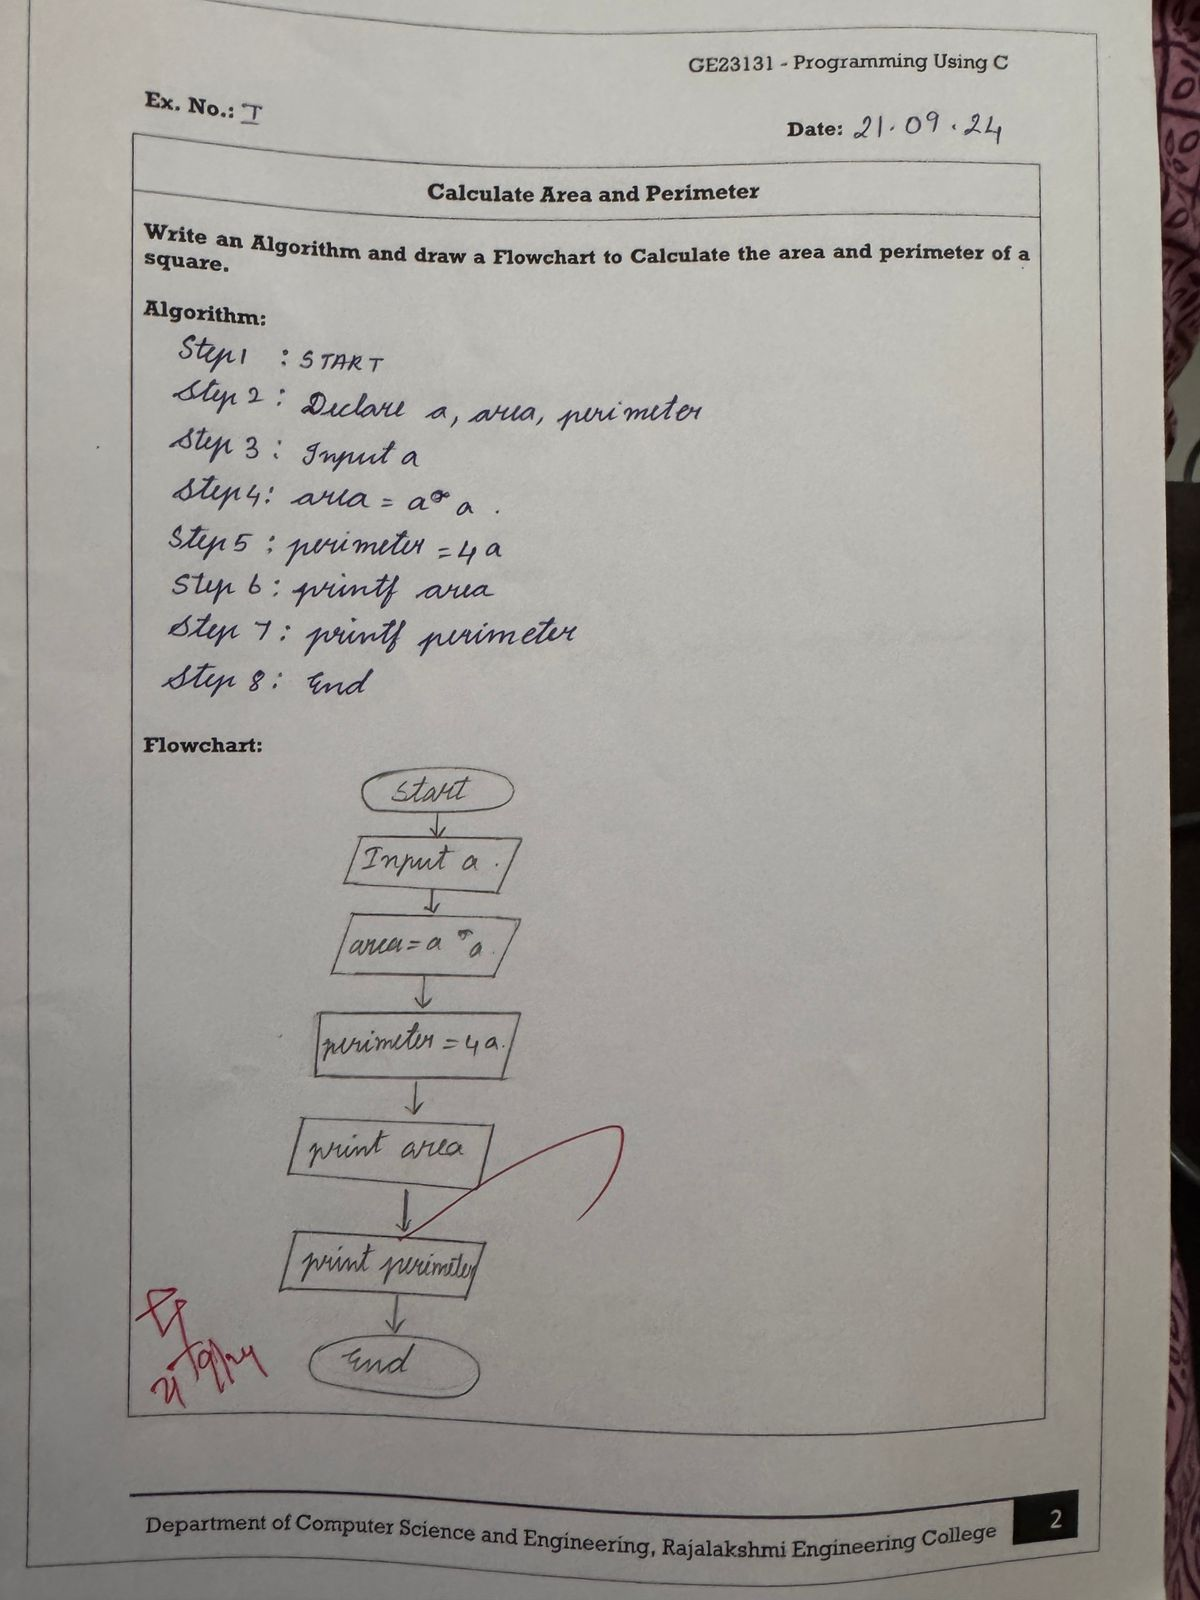 GE23131 - Programming Using C
Ex. No.: I
Date: 21.09.24
Calculate Area and Perimeter
Write an Algorithm and draw a Flowchart to Calculate the area and perimeter of a
square.
Algorithm:
Step 1 : START
Step 2 : Declare a, area, perimeter
Step 3 : Input a
Step 4: area = a * a .
Step 5 : perimeter = 4a
Step 6 : printf area
Step 7 : printf perimeter
Step 8 : End
Flowchart:
Start
Input a .
area = a * a.
perimeter = 4a.
print area
print perimeter
End
21/9/24
Department of Computer Science and Engineering, Rajalakshmi Engineering College
2